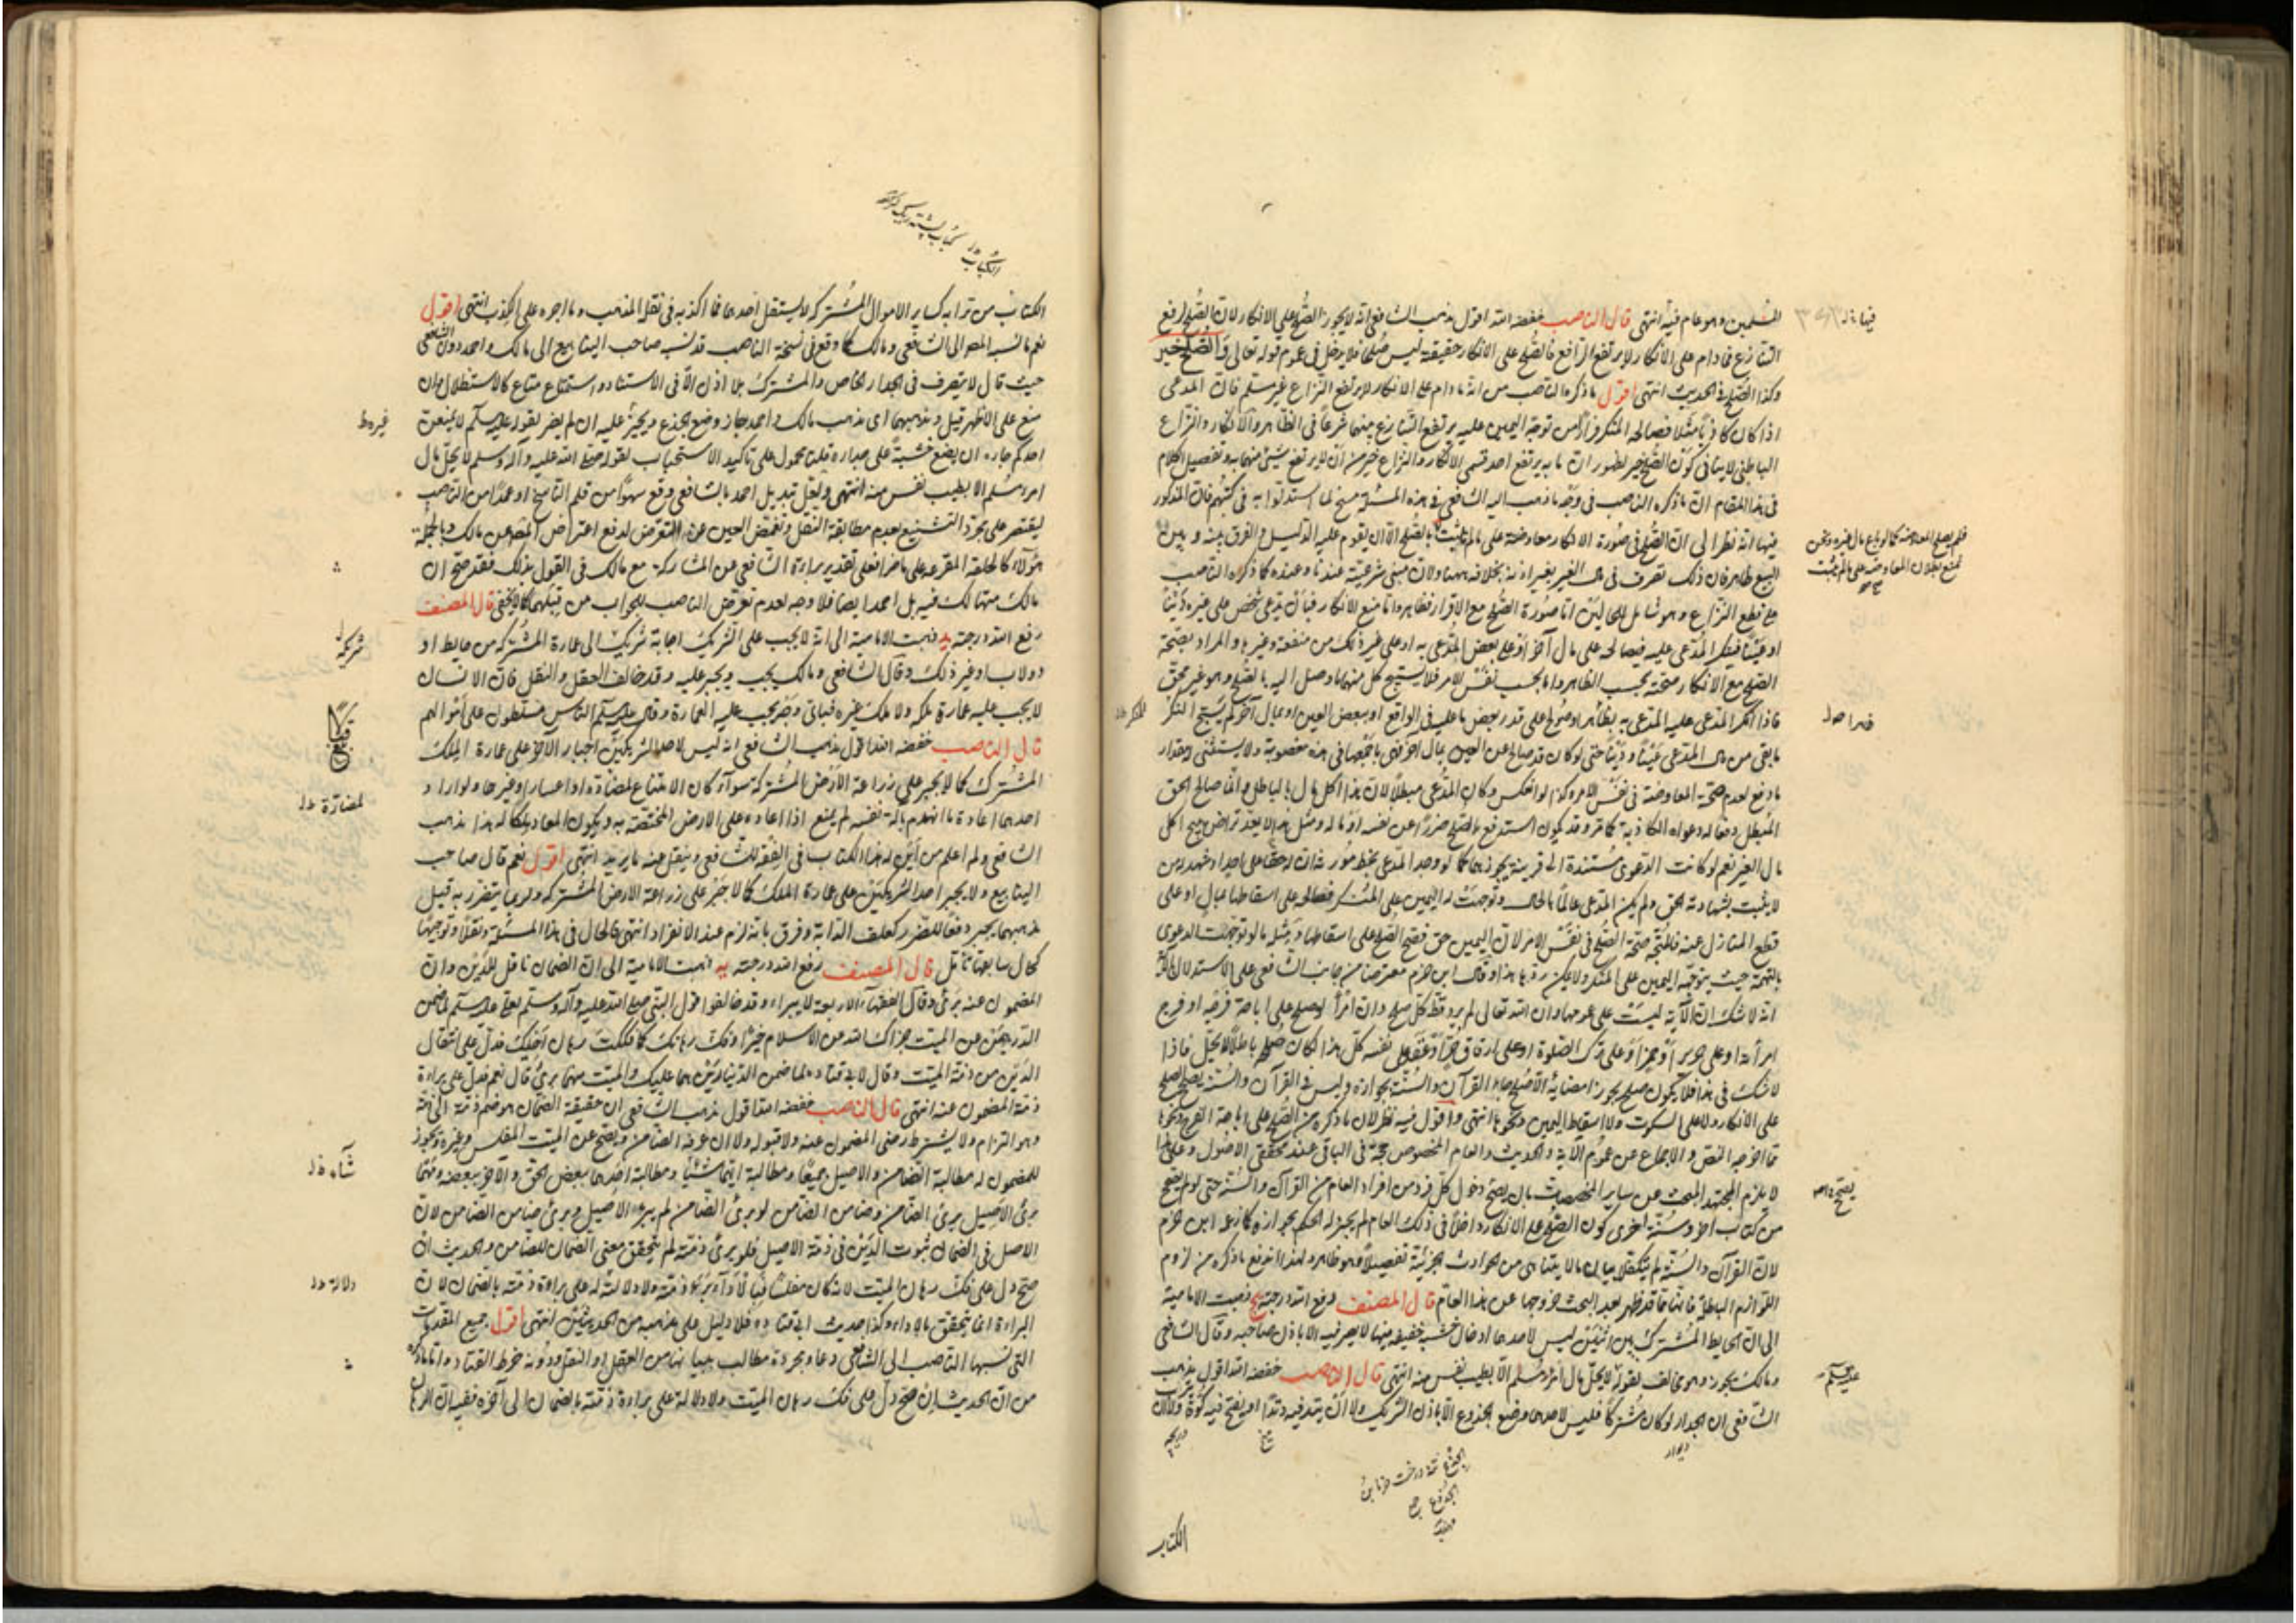 المسلمين وهو عام فيه انتهى قال الناصب خفضه الله اقول مذهب الشافعي انه لا يجوز الصلح على الانكار لان الصلح لرفع
التنازع فما دام على الانكار لا يرتفع الترافع فالصلح على الانكار حقيقة ليس صلحا فلا يدخل في عموم قوله تعالى والصلح خير
وكذا الصلح في الحديث انتهى اقول ما ذكره الناصب من انه ما دام على الانكار لا يرتفع النزاع غير مسلم فان المدعى
اذا كان كاذبا مثلا فصالحه المنكر فرارا من توجه اليمين عليه يرتفع التنازع بينهما شرعا في الظاهر والانكار والنزاع
الباطني لا ينافي كون الصلح خير لظهور ان ما به يرتفع احد قسمي الانكار والنزاع خير من ان لا يرتفع شيء منهما وتفصيل الكلام
في هذا المقام ان ما ذكره الناصب في وجه ما ذهب اليه الشافعي في هذه المسئلة مسخ لما استدلوا به في كتبهم فان المذكور
فيها انه نظرا الى ان الصلح في صورة الانكار معاوضة على ما لم يثبت بالصلح الا ان يقوم عليه الدليل والفرق بينه وبين
البيع ظاهر فان ذلك تصرف في مال الغير بغير اذنه بخلافه ههنا ولان مبنى شرعيته عندنا وعنده كما ذكره الناصب
على قطع النزاع وهو شامل للحالين اما صورة الصلح مع الاقرار فظاهر واما مع الانكار فبان يدعى شخص على غيره دينا
او عينا فينكر المدعى عليه فيصالحه على مال آخر او على بعض المدعى به او على غير ذلك من منفعة وغيرها والمراد بصحة
الصلح مع الانكار صحته بحسب الظاهر واما بحسب نفس الامر فلا يستبيح كل منهما ما وصل اليه بالصلح وهو غير محق
فاذا انكر المدعى عليه المدعى به ظاهرا وصولح على قدر بعض ما عليه في الواقع او ببعض العين او بمال آخر لم يستبح المنكر
ما بقي من مال المدعى عينا ودينا حتى لو كان قد صالح عن العين بمال آخر فهي باجمعها في يده مغصوبة ولا يستثنى له مقدار
ما دفع لعدم صحة المعاوضة في نفس الامر وكذا لو انعكس وكان المدعى مبطلا لان هذا اكل مال بالباطل وانما صالح المحق
المبطل دفعا لدعواه الكاذبة وقد يكون استدفع بالصلح ضررا عن نفسه او ماله ومثل هذا لا يعد تراض يبيح اكل
مال الغير نعم لو كانت الدعوى مستندة الى قرينة يجوزها كما لو وجد المدعى بخط مورثه ان له حقا على احد او شهد له من
لا يثبت بشهادته الحق ولم يكن المدعى عالما بالحال وتوجهت له اليمين على المنكر فصالحه على اسقاطها بمال او على
قطع المنازل عنه فالمتجه صحة الصلح في نفس الامر لان اليمين حق فصح الصلح على اسقاطها ومثله ما لو توجهت الدعوى
بالتهمة حيث يتوجه اليمين على المنكر ولا يمكن ردها هذا وقال ابن حزم معترضا من جانب الشافعي على الاستدلال بالآية
انه لا شك ان الآية ليست على عمومها وان الله تعالى لم يرد قط كل صلح وان امرأ لو صلح على اباحة فرجه او فرج
امرأته او على خمر او على ترك الصلوة او على ارقاق حر او عقد على نفسه كل هذا لكان صلحا باطلا لا يحل فاذا
لا شك في هذا فلا يكون صلح يجوز امضائه الا صلح جاء القرآن والسنة بجوازه وليس في القرآن والسنة تصحيح الصلح
على الانكار ولا على السكوت ولا اسقاط اليمين ونحوها انتهى واقول فيه نظر لان ما ذكره من الصلح على اباحة الفرج ونحوها
مما اخرجه النص والاجماع عن عموم الآية والحديث والعام المخصوص حجة في الباقي عند محققي الاصول وعلى هذا
لا يلزم المجتهد البحث عن ساير المخصصات بان يصح دخول كل فرد من افراد العام من القرآن والسنة حتى لو لم يتضح
من كتاب آخر وسنة اخرى كون الصلح على الانكار داخلا في ذلك العام لم يجز له الحكم بجوازه كما زعمه ابن حزم
لان القرآن والسنة لم يتكفلا ببيان ما لا يتناهى من الحوادث الجزئية تفصيلا وهو ظاهر ولهذا اندفع ما ذكره من لزوم
اللوازم الباطلة فانها مما قد ظهر بعد البحث خروجها عن هذا العام قال المصنف رفع الله درجته ذهبت الامامية
الى ان الحايط المشترك بين اثنين ليس لاحدهما ادخال خشبة خفيفة فيها لا يضر فيه الا باذن صاحبه وقال الشافعي
ومالك يجوز وهو مخالف لقوله لا يحل مال امرء مسلم الا بطيب نفس منه انتهى قال الناصب خفضه الله اقول مذهب
الشافعي ان الجدار لو كان مشتركا فليس لاحدهما وضع الجذوع الا باذن الشريك ولا ان يتد فيه وتدا او يفتح فيه كوة ولا ان
الكتاب
الكتاب من ترابه كساير الاموال المشتركة لا يستقل احدهما فما اكذبه في نقل المذهب وما اجره على الكذب انتهى اقول
نعم ما نسبه المص الى الشافعي ومالك كما وقع في نسخة الناصب قد نسب صاحب الينابيع الى مالك واحمد دون الشافعي
حيث قال لا يتصرف في الجدار الخاص والمشترك بلا اذن الا في الاستناد واسناد متاع كالاستظلال وان
منع على الاظهر قيل ومذهبهما اى مذهب مالك واحمد جاز وضع الجذع ويجبر عليه ان لم يضر لقوله عليه السلم لا يمنعن
احدكم جاره ان يضع خشبة على جداره قلنا محمول على تأكيد الاستحباب لقوله صلى الله عليه وآله وسلم لا يحل مال
امرء مسلم الا بطيب نفس منه انتهى ولعل تبديل احمد بالشافعي وقع سهوا من قلم الناسخ او عمدا من الناصب
ليقتصر على مجرد التشنيع بعدم مطابقة النقل وتغمض العين عن التعرض لدفع اعتراض المص عن مالك وبالجملة
هؤلاء كالحلقة المفرغة على ما مر فعلى تقدير براءة الشافعي عن المشاركة مع مالك في القول بذلك فقد صح ان
مالك متهالك فيه بل احمد ايضا فلا وجه لعدم تعرض الناصب للجواب من قبلهما كما لا يخفى قال المصنف
رفع الله درجته يد ذهبت الامامية الى انه لا يجب على الشريك اجابة شريكه الى عمارة المشترك من حايط او
دولاب او غير ذلك وقال الشافعي ومالك يجب ويجبر عليه وقد خالف العقل والنقل فان الانسان
لا يجب عليه عمارة ملكه ولا ملك غيره فباي وجه يجب عليه العمارة وقال عليه السلم الناس مسلطون على اموالهم
قال الناصب خفضه الله اقول مذهب الشافعي انه ليس لاحد الشريكين اجبار الآخر على عمارة الملك
المشترك كما لا يجبر على زراعة الارض المشتركة سواء كان الامتناع لمضادة او اعسار او غيرها ولو اراد
احدهما اعادة ما انهدم بآلة نفسه لم يمنع اذا اعاده على الارض المختصة به ويكون المعاد ملكا له هذا مذهب
الشافعي ولم اعلم من اين له هذا الكتاب في الفقه للشافعي وينقل عنه ما يريد انتهى اقول نعم قال صاحب
الينابيع ولا يجبر احد الشريكين على عمارة الملك كما لا جبر على زراعة الارض المشتركة ولو بما يتضرر به قيل
مذهبهما يجبر دفعا للضرر كعلف الدابة وفرق بانه لزم عند الانفراد انتهى فالحال في هذا المسئلة نقلا وتوجيها
كحال سابقتها تأمل قال المصنف رفع الله درجته يه ذهبت الامامية الى ان الضمان ناقل للدين وان
المضمون عنه برئ وقال الفقهاء الاربعة لا يبرء وقد خالفوا قول النبي صلى الله عليه وآله وسلم لعلي عليه السلم لما ضمن
الدرهمين عن الميت جزاك الله عن الاسلام خيرا وفك رهانك كما فككت رهان اخيك فدل على انتقال
الدين من ذمة الميت وقال لابي قتاده لما ضمن الدينارين هما عليك والميت منهما برئ قال نعم فدل على براءة
ذمة المضمون عنه انتهى قال الناصب خفضه الله اقول مذهب الشافعي ان حقيقة الضمان هو ضم ذمة الى ذمة
وهو التزام ولا يشترط رضى المضمون عنه ولا قبوله ولا ان عرفه الضامن ويصح عن الميت المفلس وغيره ويجوز
للمضمون له مطالبة الضامن والاصيل جميعا ومطالبة ايهما شاء ومطالبة احدهما ببعض الحق والآخر ببعضه ومتى
برئ الاصيل برئ الضامن وضامن الضامن لو برئ الضامن لم يبرء الاصيل وبرئ ضامن الضامن لان
الاصل في الضمان ثبوت الدين في ذمة الاصيل فلو برئ ذمته لم يتحقق معنى الضمان للضامن والحديث ان
صح دل على فك رهان الميت لانه كان مفلسا ولا دلالة له على براءة ذمته بالضمان لان
البراءة انما يتحقق بالاداء وكذا حديث ابي قتاده فلا دليل على مذهبه من الحديثين انتهى اقول جميع المقدمات
التي نسبها الناصب الى الشافعي دعاو مجردة مطالب ببيانها من العقل او النقل ودونه خرط القتاد واما ما ذكره
من ان الحديث ان صح دل على فك رهان الميت ولا دلالة على براءة ذمته بالضمان الى آخره ففيه ان الرهان